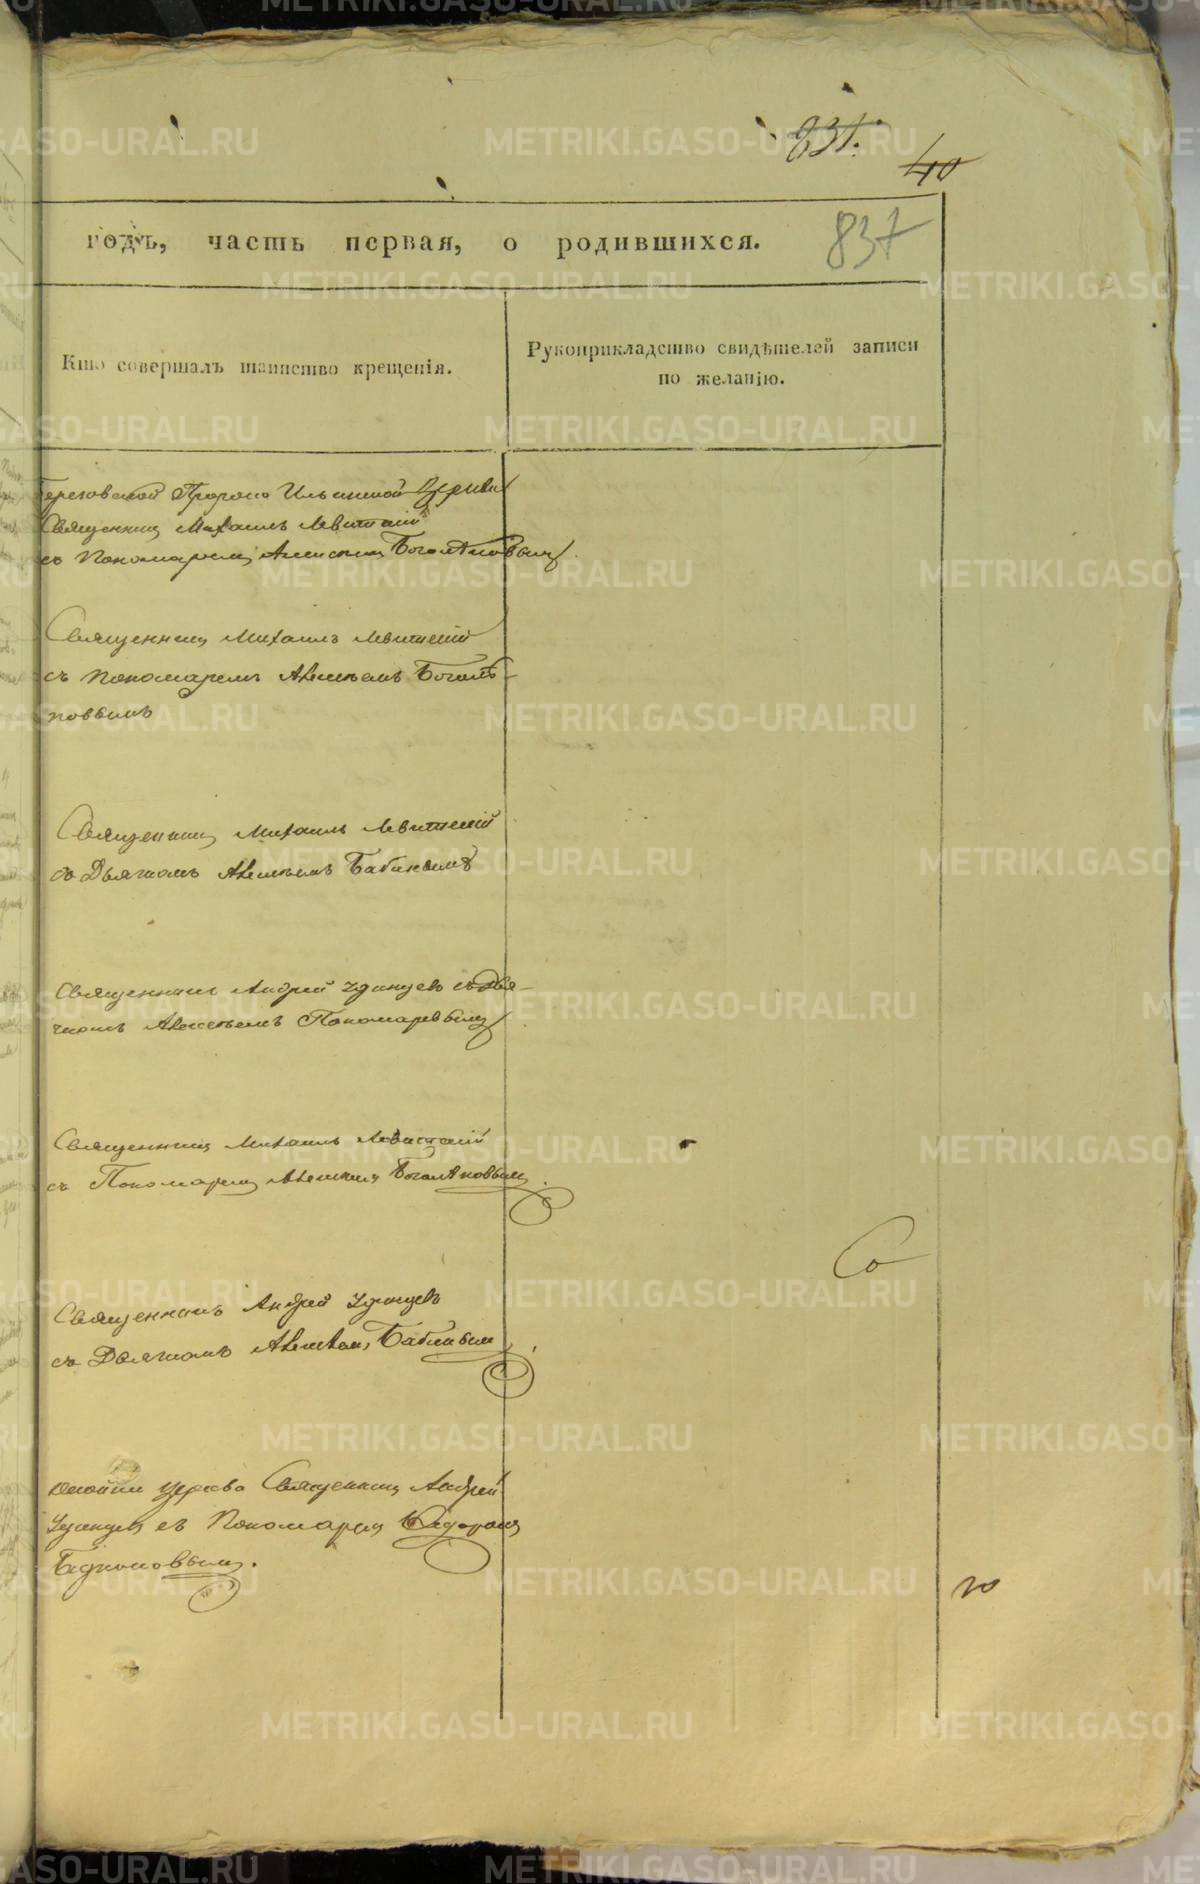 831.
40
837
годъ, часть первая, о родившихся.
Кто совершалъ таинство крещенія.
Рукоприкладство свидѣтелей записи
по желанію.
Пророко Ильинской Церкви
Священникъ Михаилъ Левитскій
съ Пономаремъ Алексѣемъ Боголѣповымъ
Священникъ Михаилъ Левитскій
съ Пономаремъ Алексѣемъ Боголѣ-
повымъ
Священникъ Михаилъ Левитскій
съ Дьячкомъ Алексѣемъ Бабинымъ
Священникъ Андрей Удинцевъ съ Дья-
чкомъ Алексѣемъ Пономаревымъ
Священникъ Михаилъ Левитскій
съ Пономаремъ Алексѣемъ Боголѣповымъ
Священникъ Андрей Удинцевъ
съ Дьячкомъ Алексѣемъ Бабинымъ
церкви Священникъ Андрей
Удинцевъ съ Пономаремъ
METRIKI.GASO-URAL.RU